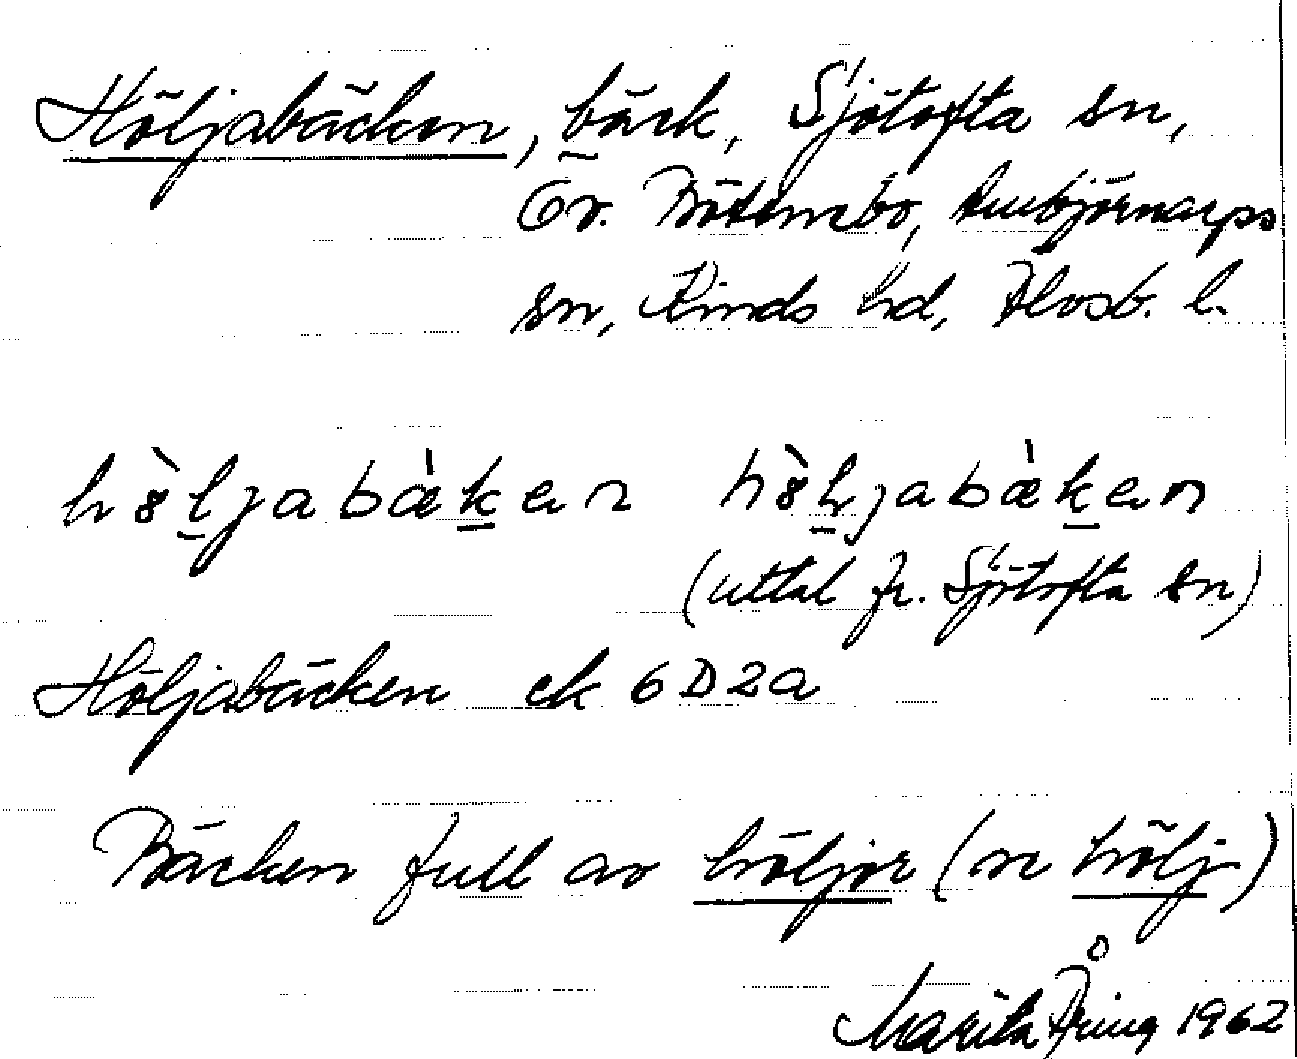 Höljabäcken, bäck, Sjötofta sn,
Ör. Bötembo, Ambjörnarps
sn, Kinds hd, Älvsb. l.
höljabàken höljabàken
(uttal fr. Sjötofta sn)
Höljabäcken ek 6D2a
Bäcken full av höljor (en hölj)
Marita Åring 1962